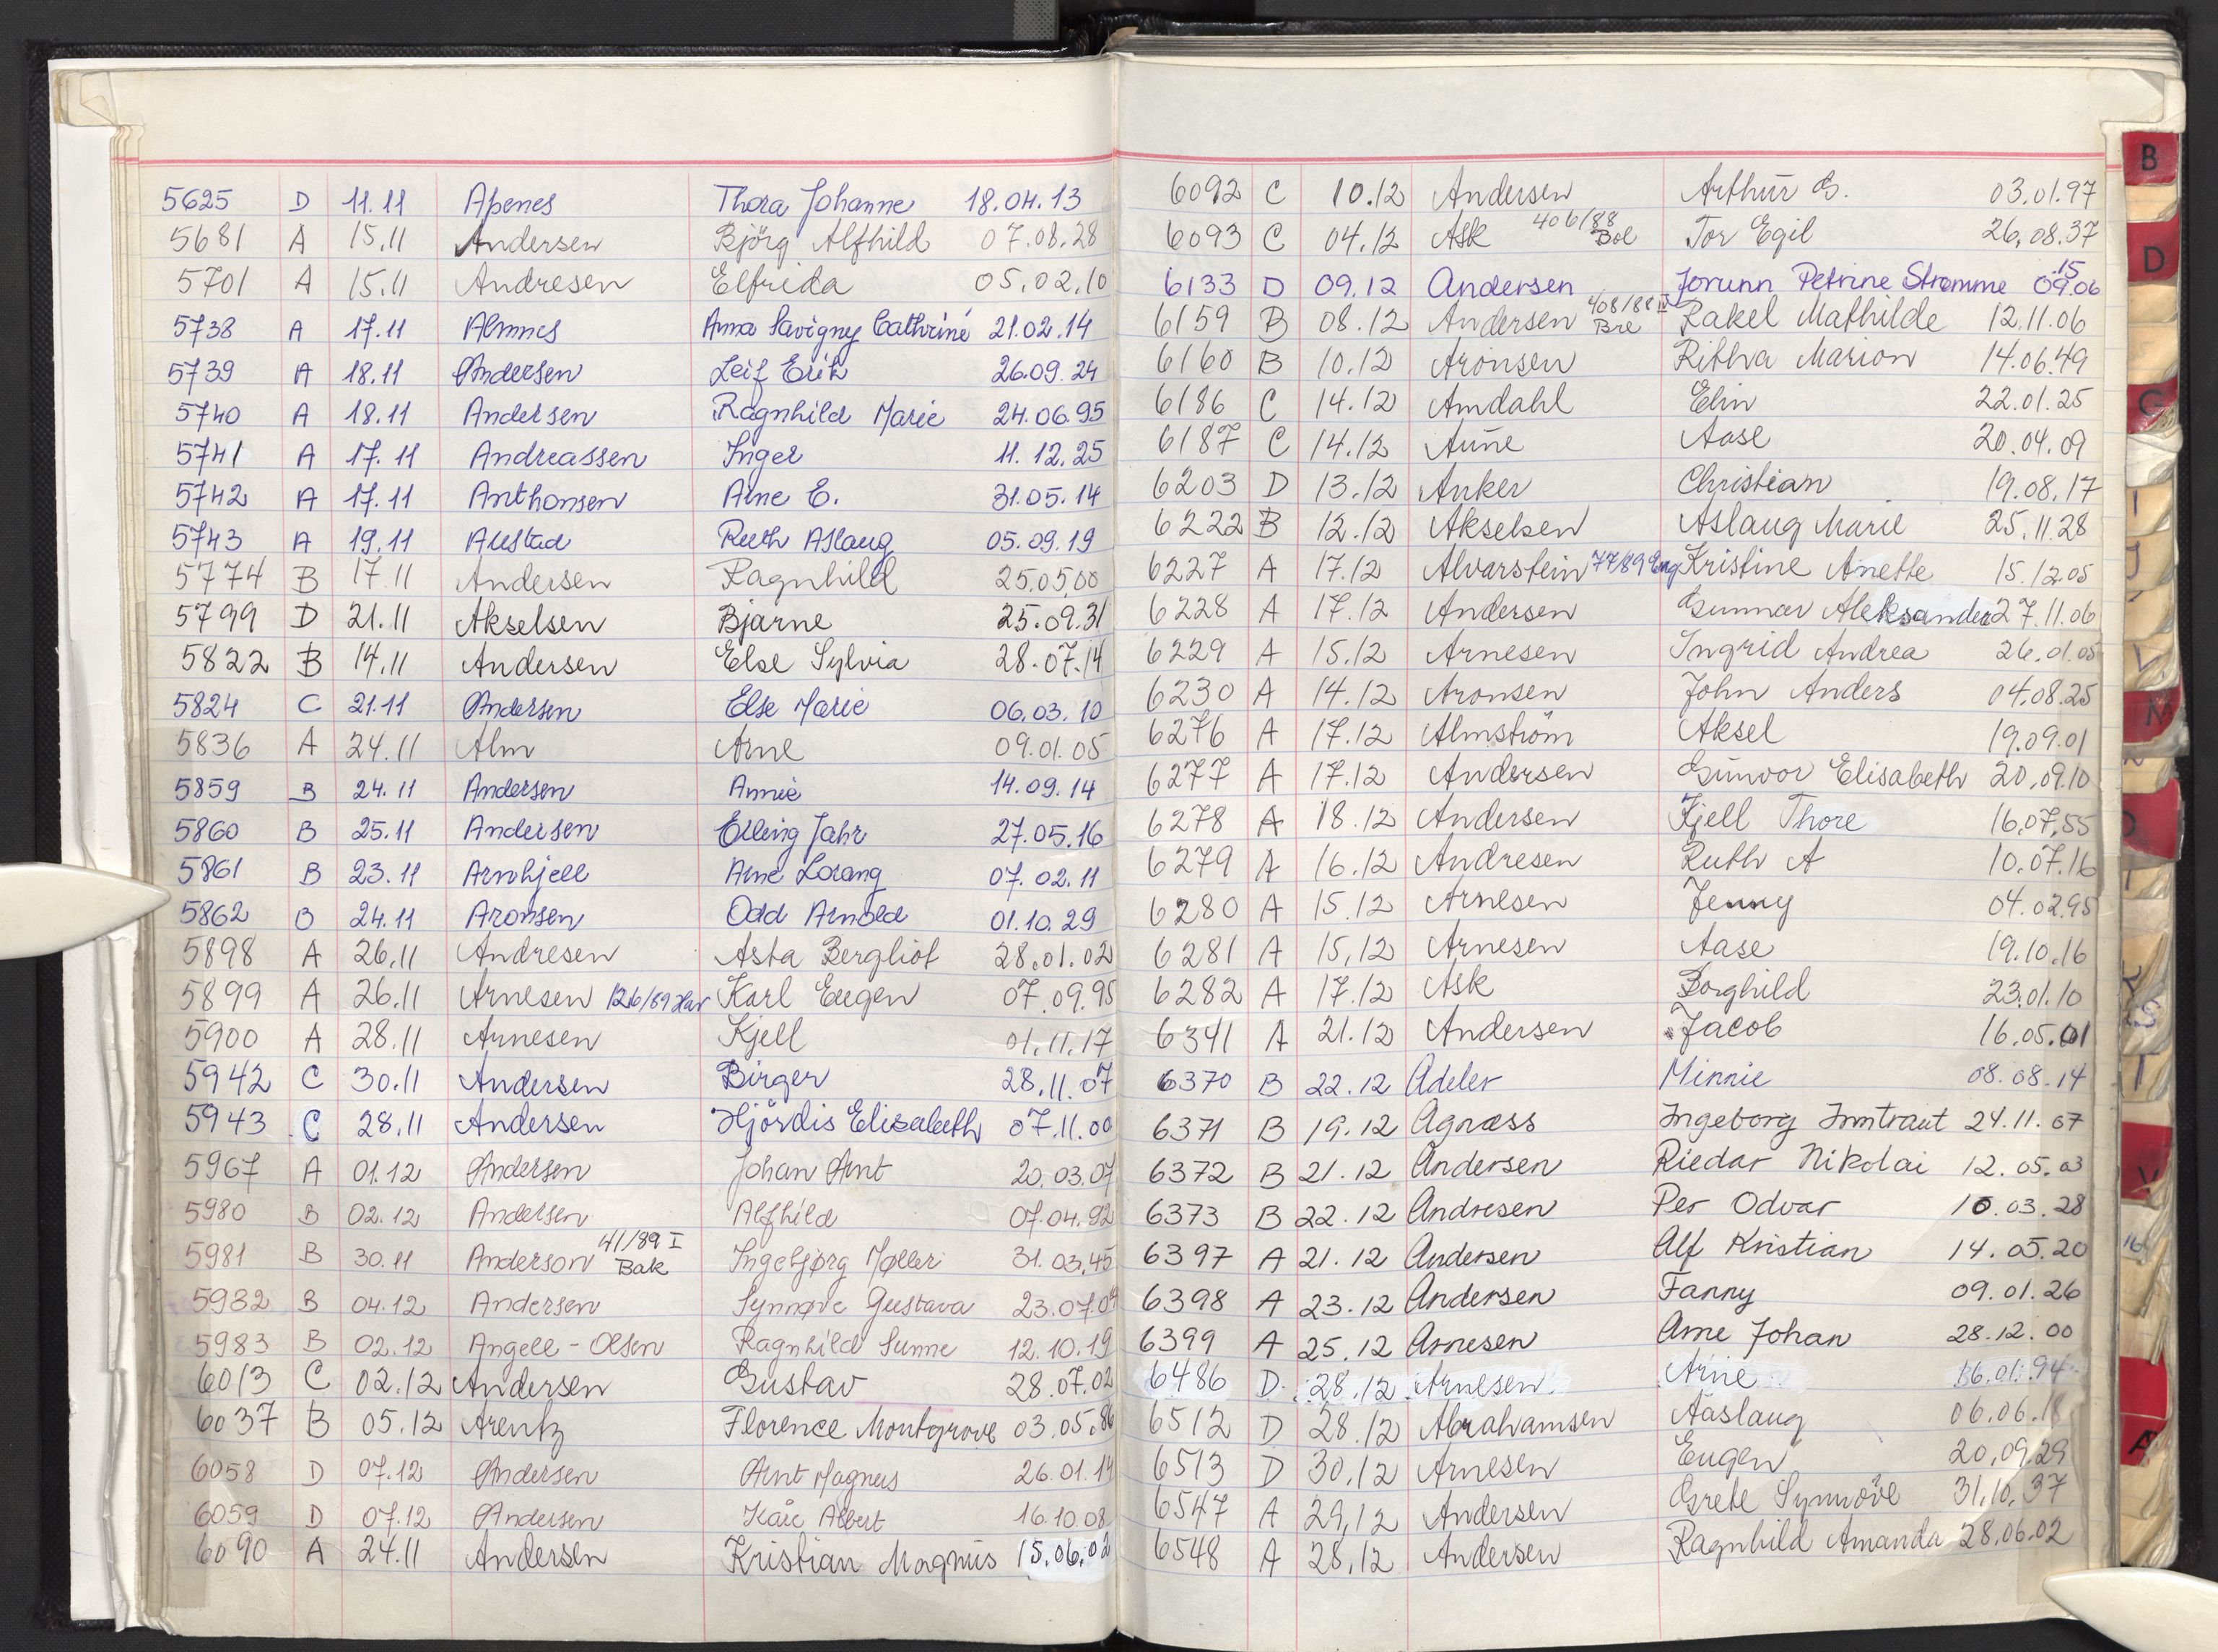 5625 D 11.11 Apenes Thora Johanne 18.04.13
5681 A 15.11 Andersen Björg Alfhild 07.08.28
5701 A 15.11 Andresen Elfrida 05.02.10
5738 A 17.11 Almnes Anna Savigny Cathrine 21.02.14
5739 A 18.11 Andersen Leif Erik 26.09.24
5740 A 18.11 Andersen Ragnhild Marie 24.06.95
5741 A 17.11 Andreassen Inger 11.12.25
5742 A 17.11 Anthonsen Arne E. 31.05.14
5743 A 19.11 Austad Ruth Aslaug 05.09.19
5774 B 17.11 Andersen Ragnhild 25.05.00
5799 D 21.11 Akselsen Bjarne 25.09.31
5822 B 14.11 Andersen Else Sylvia 28.07.14
5824 C 21.11 Andersen Else Marie 06.03.10
5836 A 24.11 Alm Arne 09.01.05
5859 B 24.11 Andersen Annie 14.09.14
5860 B 25.11 Andersen Erling Jahr 27.05.16
5861 B 23.11 Arnhjell Arne Lorang 07.02.11
5862 B 24.11 Aronsen Odd Arnold 01.10.29
5898 A 26.11 Andresen Asta Bergliot 28.01.02
5899 A 26.11 Arnesen 126/89 Har Karl Eugen 07.09.95
5900 A 28.11 Arnesen Kjell 01.11.17
5942 C 30.11 Andersen Birger 28.11.07
5943 C 28.11 Andersen Hjördis Elisabeth 07.11.00
5967 A 01.12 Andersen Johan Arnt 20.03.07
5980 B 02.12 Andersen Alfhild 07.04.92
5981 B 30.11 Anderson 41/89 I Bak Ingebjørg Møller 31.03.45
5932 B 04.12 Andersen Synnøve Gustava 23.07.04
5983 B 02.12 Angell-Olsen Ragnhild Sunne 12.10.19
6013 C 02.12 Andersen Gustav 28.07.02
6037 B 05.12 Arentz Florence Montgrove 03.05.86
6058 D 07.12 Andersen Arnt Magnus 26.01.14
6059 D 07.12 Andersen Kåre Albert 16.10.08
6090 A 24.11 Andersen Kristian Magnus 15.06.02
6092 C 10.12 Andersen Arthur G. 03.01.97
6093 C 04.12 Ask 406/88 Bol Tor Egil 26.08.37
6133 D 09.12 Andersen Jorunn Petrine Strømme 15 09.06
6159 B 08.12 Andersen 408/88 IV Bre Rakel Mathilde 12.11.06
6160 B 10.12 Aronsen Ritha Marion 14.06.49
6186 C 14.12 Amdahl Elin 22.01.25
6187 C 14.12 Aune Aase 20.04.09
6203 D 13.12 Anker Christian 19.08.17
6222 B 12.12 Akselsen Aslaug Marie 25.11.28
6227 A 17.12 Alvarstein 77/89 Eng Kristine Anette 15.12.05
6228 A 17.12 Andersen Gunnar Aleksander 27.11.06
6229 A 15.12 Arnesen Ingrid Andrea 26.01.05
6230 A 14.12 Aronsen John Anders 04.08.25
6276 A 17.12 Almström Aksel 19.09.01
6277 A 17.12 Andersen Gunvor Elisabeth 20.09.10
6278 A 18.12 Andersen Kjell Thore 16.07.55
6279 A 16.12 Andresen Ruth A 10.07.16
6280 A 15.12 Arnesen Jenny 04.02.95
6281 A 15.12 Arnesen Aase 19.10.16
6282 A 17.12 Ask Borghild 23.01.10
6341 A 21.12 Andersen Jacob 16.05.01
6370 B 22.12 Adeler Minnie 08.08.14
6371 B 19.12 Agnæss Ingeborg Irmtraut 24.11.07
6372 B 21.12 Andersen Riedar Nikolai 12.05.03
6373 B 22.12 Andresen Per Odvar 10.03.28
6397 A 21.12 Andersen Alf Kristian 14.05.20
6398 A 23.12 Andersen Fanny 09.01.26
6399 A 25.12 Arnesen Arne Johan 28.12.00
6486 D 28.12 Arnesen Arne 16.01.94
6512 D 28.12 Abrahamsen Aaslaug 06.06.18
6513 D 30.12 Arnesen Eugen 20.09.29
6547 A 29.12 Andersen Grete Synnöve 31.10.37
6548 A 28.12 Andersen Ragnhild Amanda 28.06.02
B
D
G
I
J
V
N
S
T
V
16
A